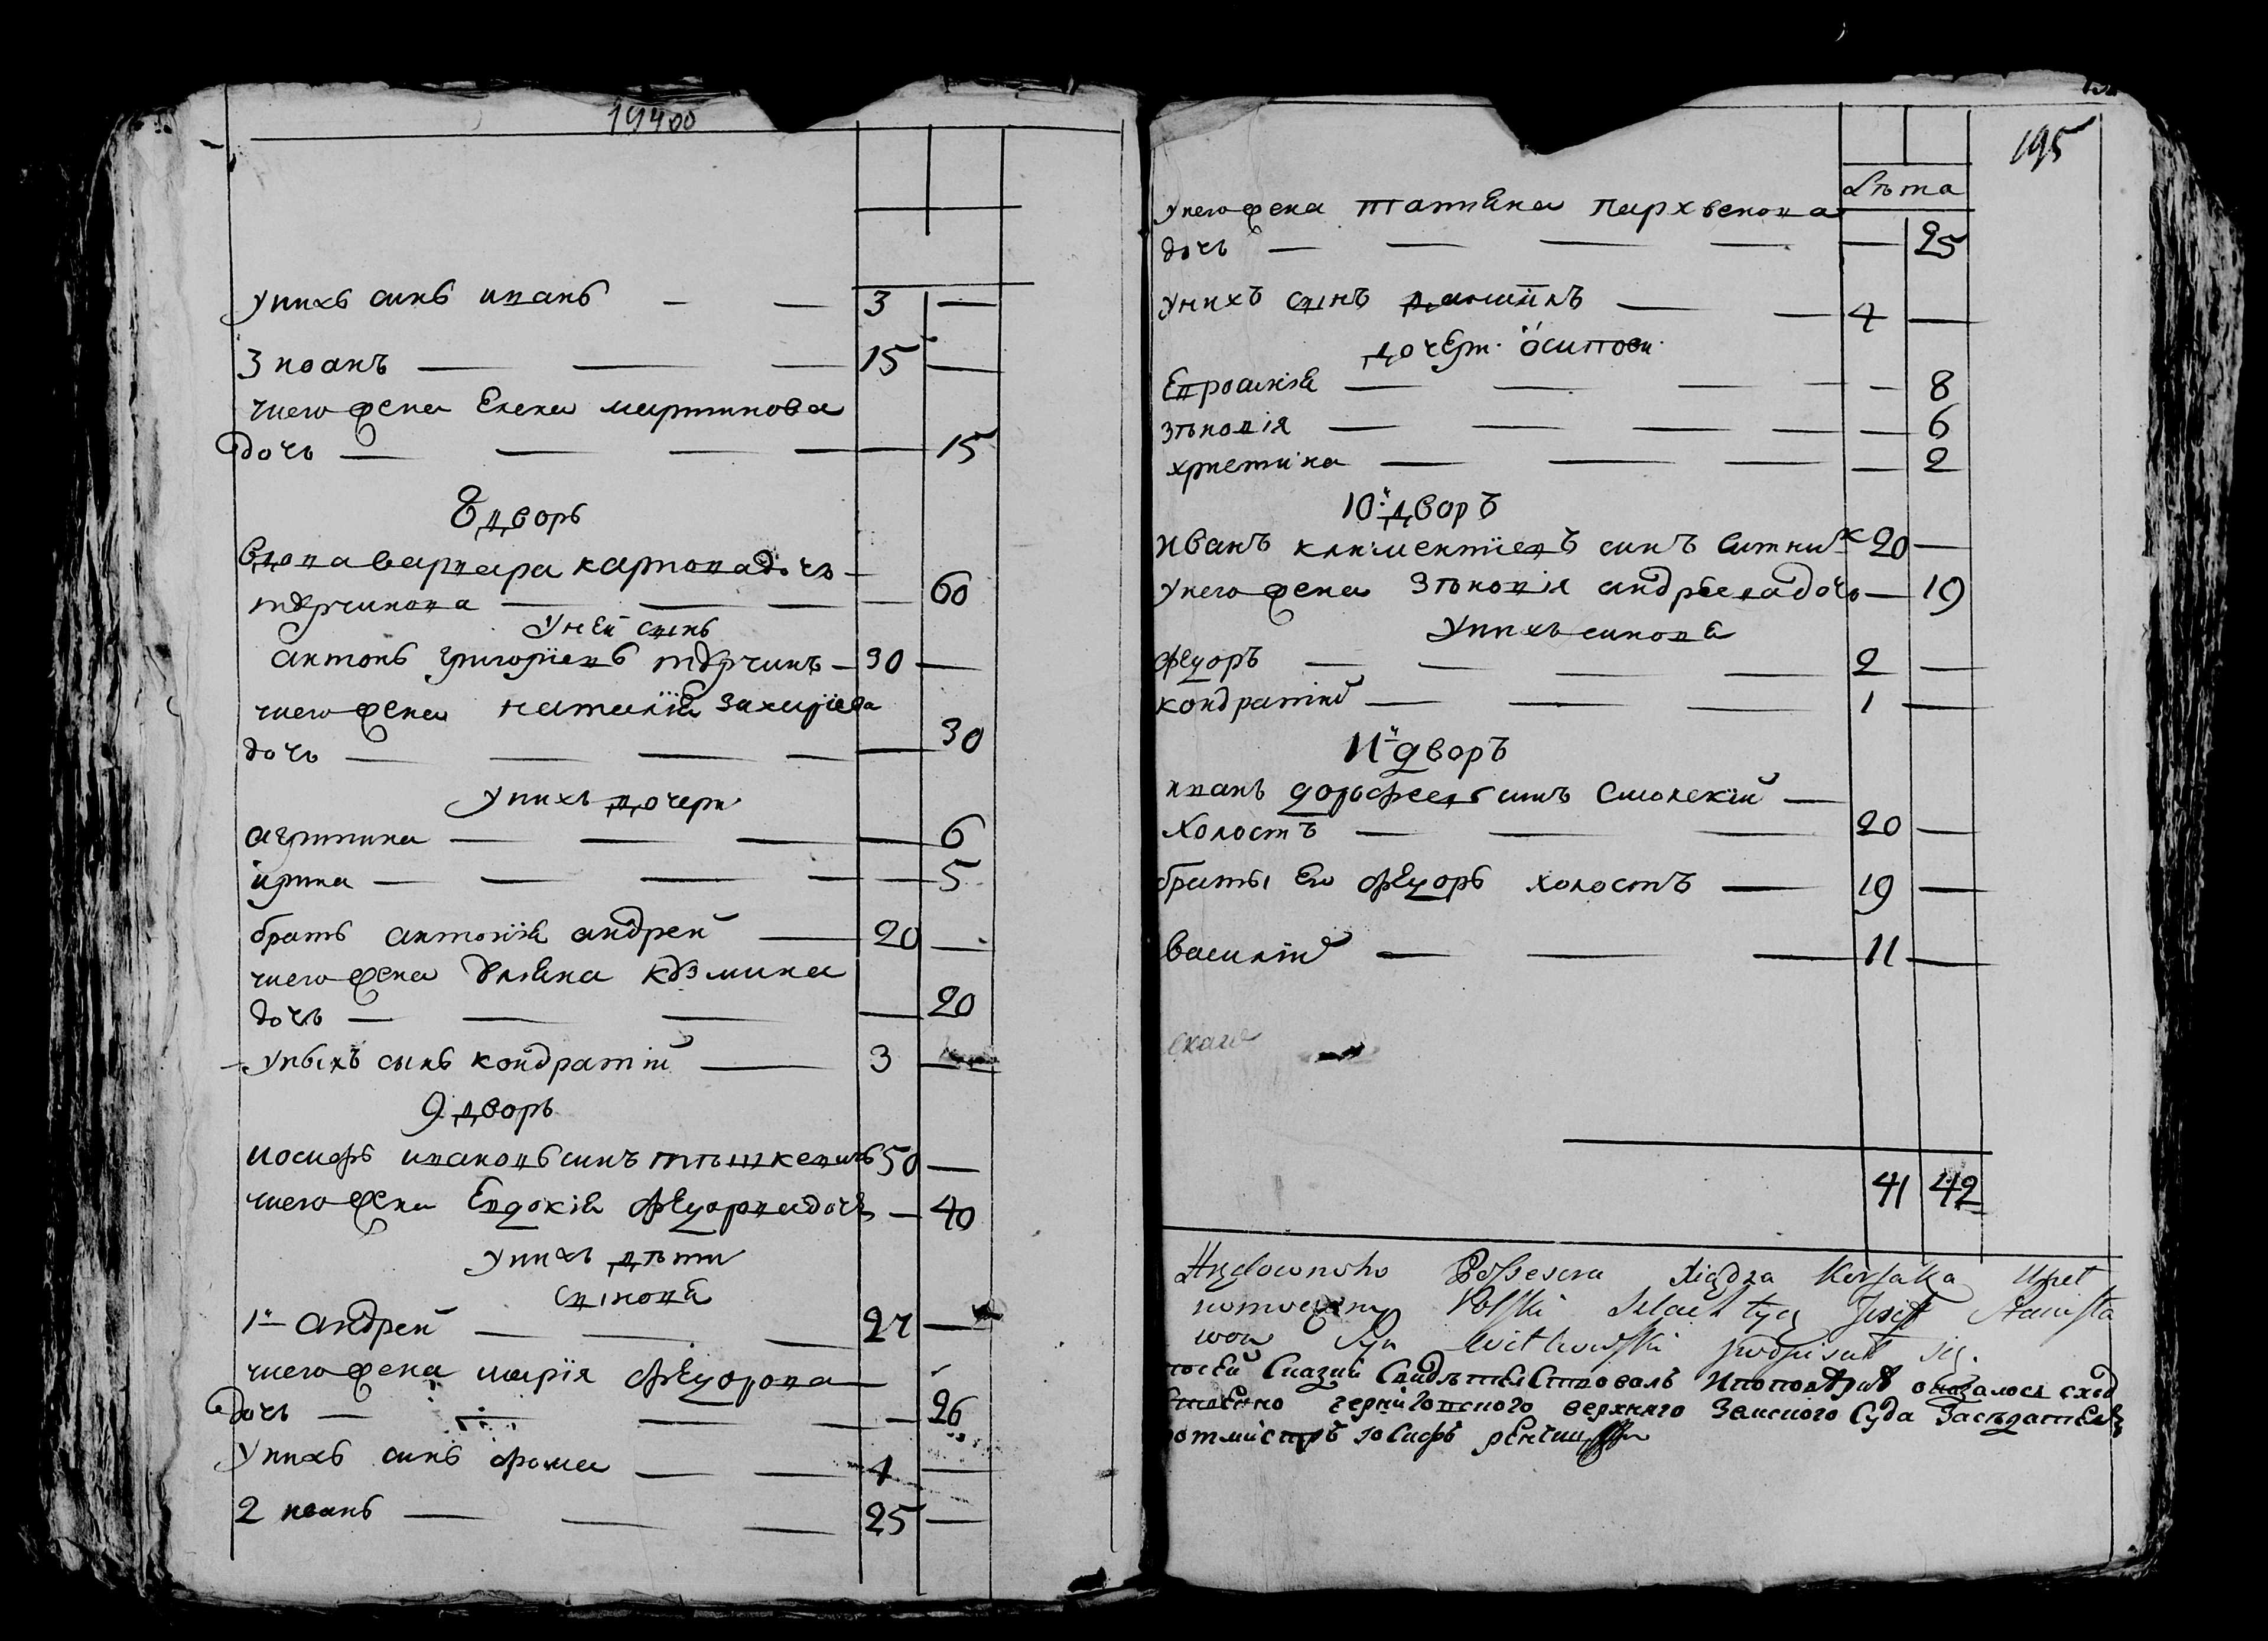 194об
унихъ синъ иванъ — — 3 —
3 иоанъ — — — 15 —
унего жена Елена мартинова
дочъ — — — — — 15
8 дворъ
вдова варвара карповадочъ —
тѫрчинова — — — — 60
уней сынъ
антонъ григориевъ тѫрчинъ — 30 —
унего жена наталия захариева
дочъ — — — — — 30
унихъ дочери
агрипина — — — — 6
ирина — — — — — 5
братъ антония андрей — 20 —
унего жена ѫлияна кѫзмина
дочъ — — — — 20
унихъ сынъ кондратий — 3 —
9 дворъ
иосифъ ивановъ синъ тишкевичъ 50 —
унего жена Евдокия федоровадочъ — 40
унихъ дѣти
сынова
1й андрей — — — 27 —
унего жена мария федорова —
дочъ — — — — — 26
унихъ синъ фома — — 1 —
2 иванъ — — — 25 —
195
Лѣта
унего жена татияна пархвенова
дочъ — — — — — — 25
унихъ сынъ даниилъ — — 4 —
дочери осипови
Евросиния — — — — — 8
зѣновія — — — — — 6
христина — — — — 2
10й дворъ
иванъ климентиевъ синъ ситник 20 —
унего жена зѣновія андрѣевадочъ — 19
унихъ синова
федоръ — — — — 2 —
кондратий — — — 1 —
11й дворъ
иванъ дорофеевъ синъ Смолский —
холостъ — — — 20 —
братъ его федоръ холостъ — 19 —
василий — — — 11 —
41 42
Possesora Xiędza Korsaka
Polski Szlachtyc Josef Stanisła
wow Syn Witkowski podpisał się.
посей Сказки Свидѣтелствовалъ Ипоповѣрке оказалося сход
ственно черниговского верхнаго Земского Суда Засѣдателъ
ротмистръ иосифъ